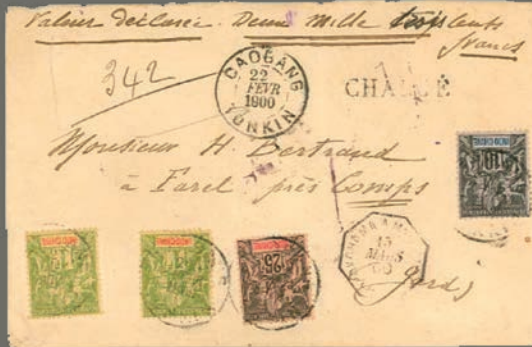 Valeur déclarée. Deux Mille trois cents
francs
342
CAOBANG
22
FEVR
1900
TONKIN
CHARGÉ
Monsieur H. Bertrand
à Farel près Comps
(Gard)
15
MARS
00
INDO-CHINE
10
INDO-CHINE
INDO-CHINE
25